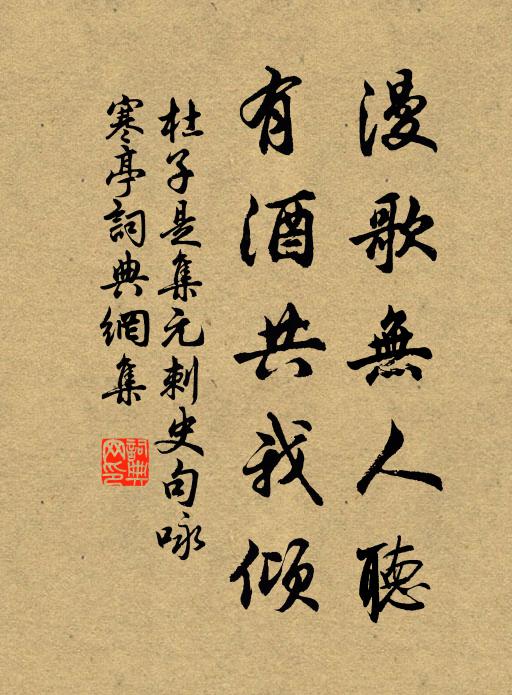 漫歌無人聽
有酒共我傾
杜子是集元刺史句咏
寒亭詞典網集
詞典网印